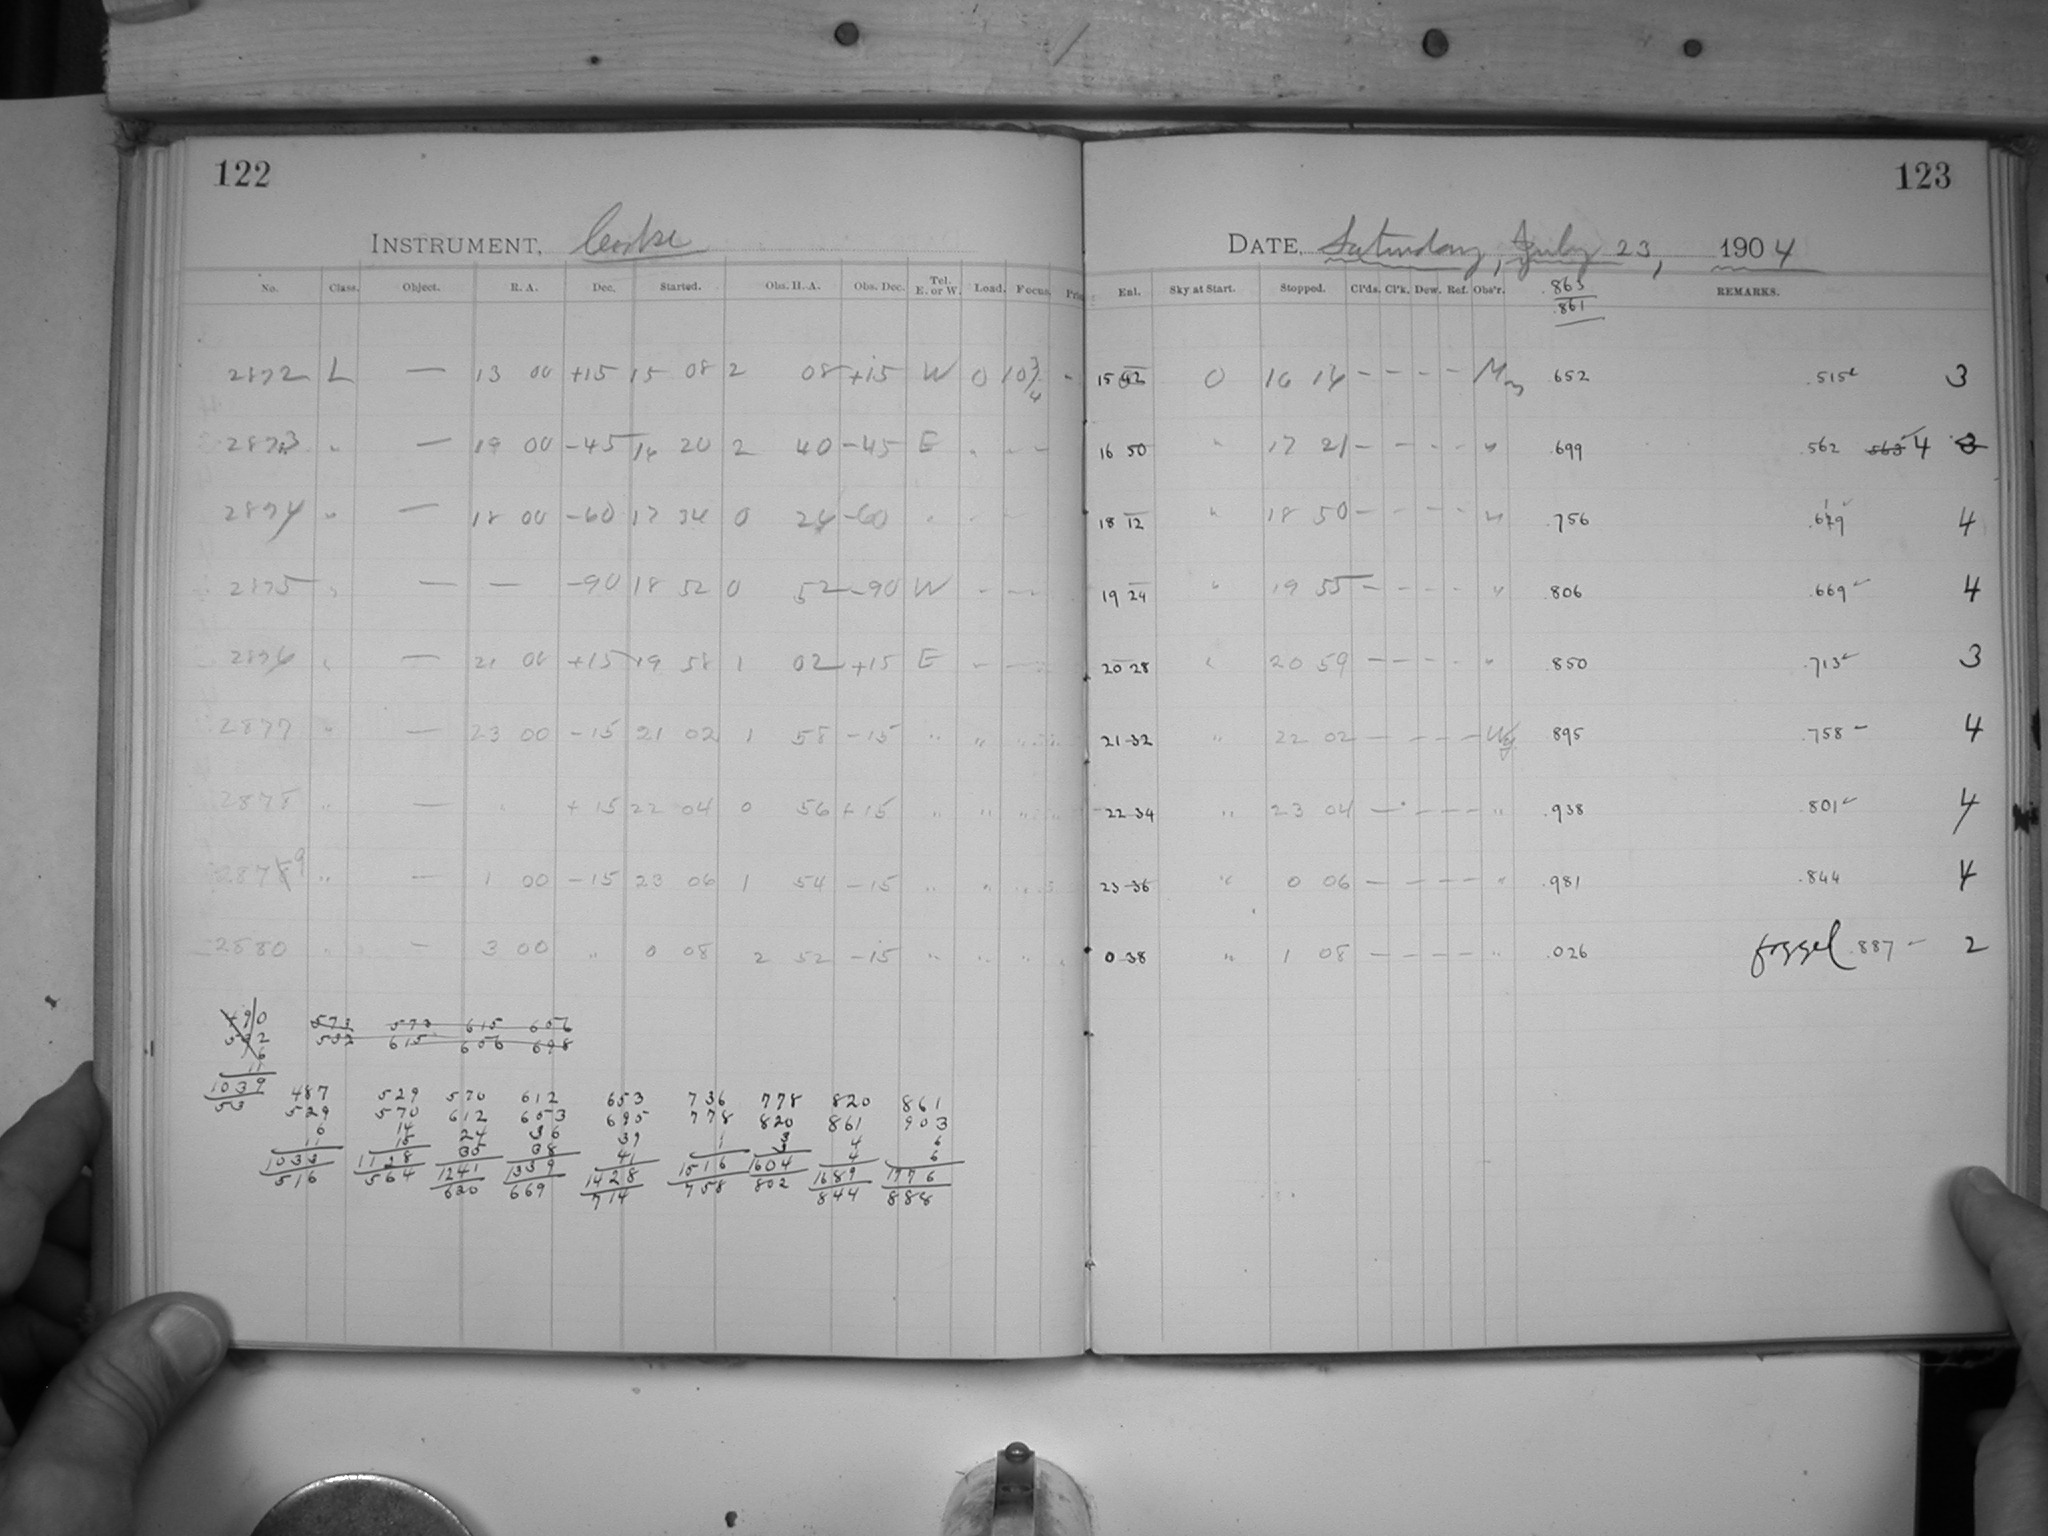 122
INSTRUMENT, Cooke
No. Class. Object. R. A. Dec. Started. Obs. H. A. Obs. Dec. Tel. E. or W. Load. Focus.
2872 L — 13 00 +15 15 08 2 08 +15 W 0 10 3/4 "
2873 " — 19 00 -45 16 20 2 40 -45 E " " "
2874 " — 18 00 -60 17 34 0 24 -60 " " "
2875 " — — -90 18 52 0 52 -90 W " "
2876 " — 21 00 +15 19 58 1 02 +15 E " "
2877 " — 23 00 -15 21 02 1 58 -15 " " "
2878 " — " +15 22 04 0 56 +15 " " "
2879 " — 1 00 -15 23 06 1 54 -15 " " "
2880 " — 3 00 " 0 08 2 52 -15 " " "
490 573 573 615 656
532 615 656 698
6
11
1039
53
487 529 570 612 653 736 778 820 861
529 570 612 653 695 778 820 861 903
6 14 24 36 39 1 3 4 6
11 15 35 38 41 3 4 6
1033 1128 1241 1339 1428 1516 1604 1689 1776
516 564 620 669 714 758 802 844 888
123
DATE, Saturday, July 23, 1904
Enl. Sky at Start. Stopped. Cl'ds. Cl'k. Dew. Ref. Obs'r. REMARKS.
.863
.861
15 42 0 16 14 — — — — .652 .515 3
16 50 " 17 21 — — — — " .699 .562 563 4 3
18 12 " 18 50 — — — — " .756 4
19 24 " 19 55 — — — — " .806 .669 4
20 28 " 20 59 — — — — " .850 .713 3
21 32 " 22 02 — — — — 895 .758 4
22 34 " 23 04 — — — — " .938 .801 4
23 36 " 0 06 — — — — " .981 .844 4
0 38 " 1 08 — — — — " .026 fogged .887 2